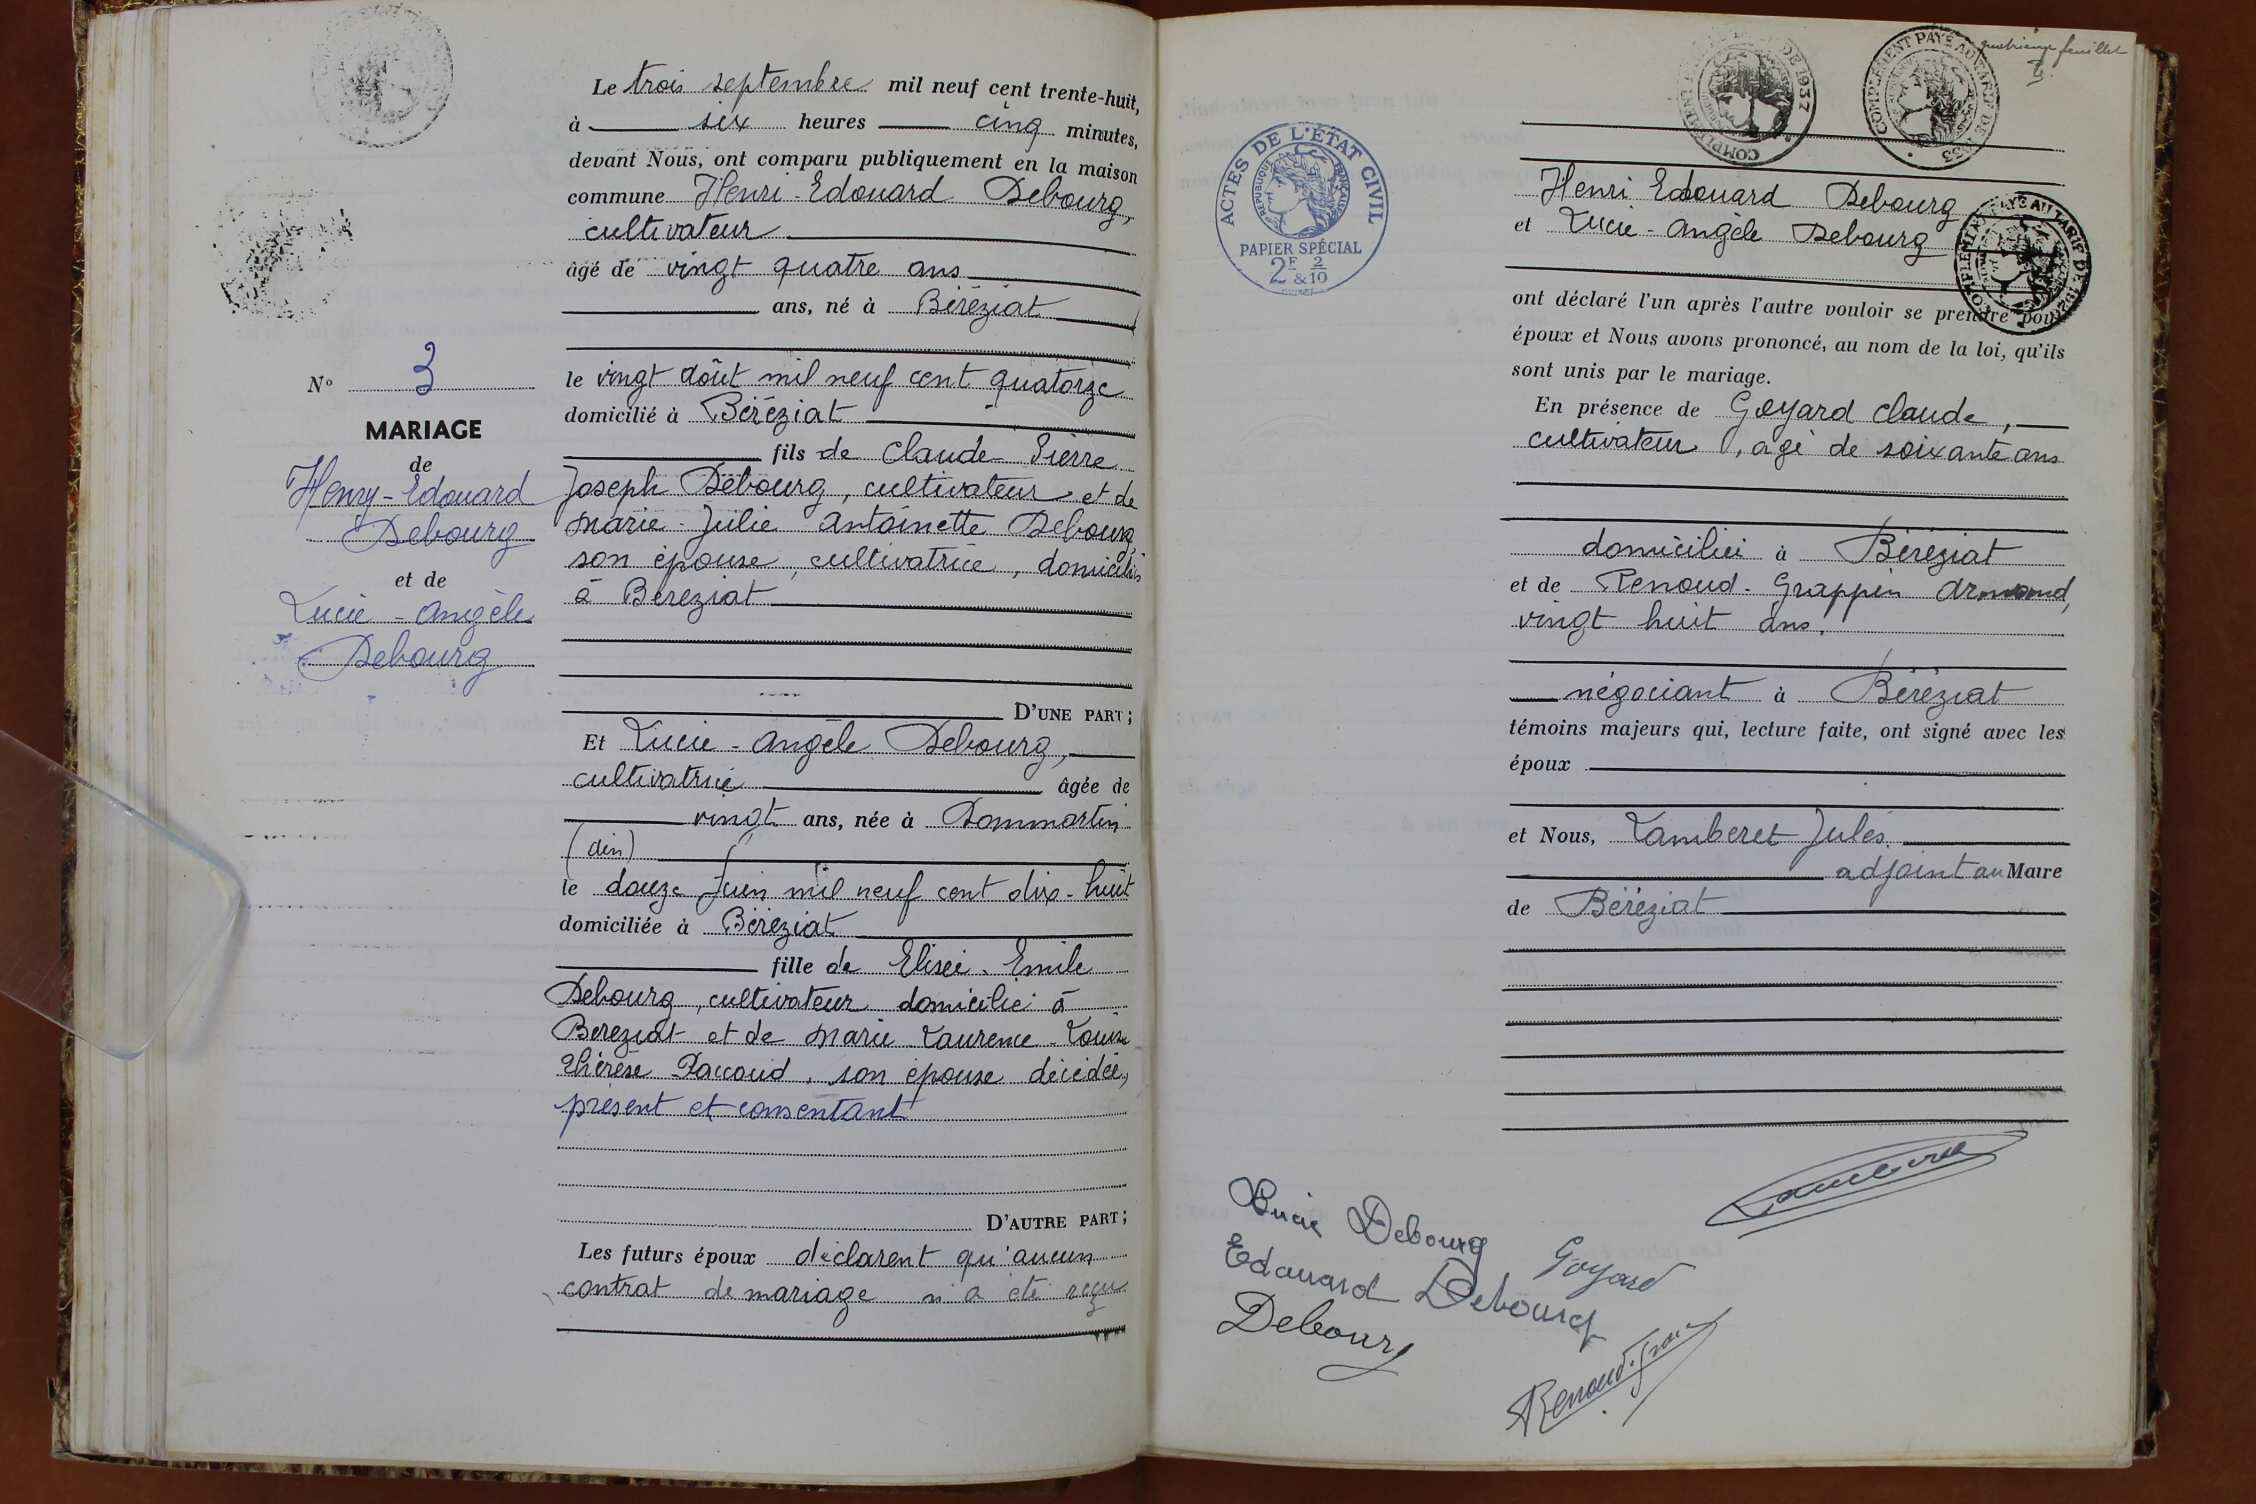 Le trois septembre mil neuf cent trente-huit,
à six heures cinq minutes,
devant Nous, ont comparu publiquement en la maison
commune Henri-Edouard Debourg,
cultivateur
âgé de vingt quatre ans
ans, né à Béréziat
le vingt août mil neuf cent quatorze
domicilié à Béréziat
fils de Claude-Pierre
Joseph Debourg, cultivateur et de
Marie-Julie Antoinette Debourg
son épouse, cultivatrice, domiciliés
à Béréziat
D'UNE PART;
Et Lucie-Angèle Debourg,
cultivatrice âgée de
vingt ans, née à Dommartin
(Ain)
le douze Juin mil neuf cent dix-huit
domiciliée à Béréziat
fille de Elisée-Emile
Debourg, cultivateur domicilié à
Béréziat et de Marie-Laurence-Louise
Thérèse Paccoud, son épouse décédée,
présent et consentant
D'AUTRE PART;
Les futurs époux déclarent qu'aucun
contrat de mariage n'a été reçu
N° 3
MARIAGE
de
Henry-Edouard
Debourg
et de
Lucie-Angèle
Debourg
quatrième feuillet
COMPLÉMENT PAYÉ AU TARIF DE 1937
ACTES DE L'ÉTAT CIVIL
RÉPUBLIQUE FRANÇAISE
PAPIER SPÉCIAL
2F & 2/10
Henri Edouard Debourg
et Lucie-Angèle Debourg
ont déclaré l'un après l'autre vouloir se prendre pour
époux et Nous avons prononcé, au nom de la loi, qu'ils
sont unis par le mariage.
En présence de Goyard Claude,
cultivateur, agé de soixante ans
domicilié à Béréziat
et de Renoud-Grappin Armand,
vingt huit ans.
négociant à Béréziat
témoins majeurs qui, lecture faite, ont signé avec les
époux
et Nous, Lamberet Jules
adjoint au Maire
de Béréziat
Lamberet
Lucie Debourg
Edouard Debourg
Goyard
Debourg
Renoud-Grap